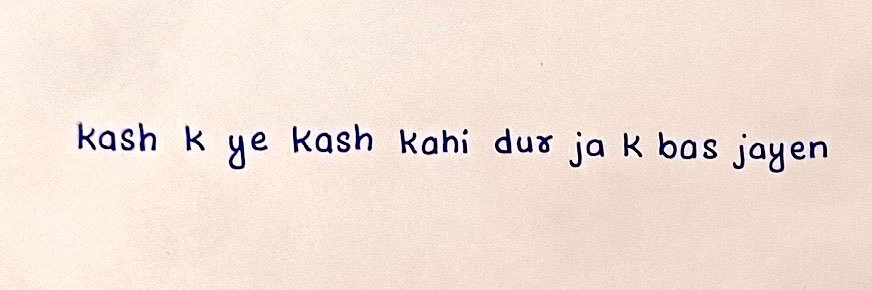 kash k ye kash kahi dur ja k bas jayen